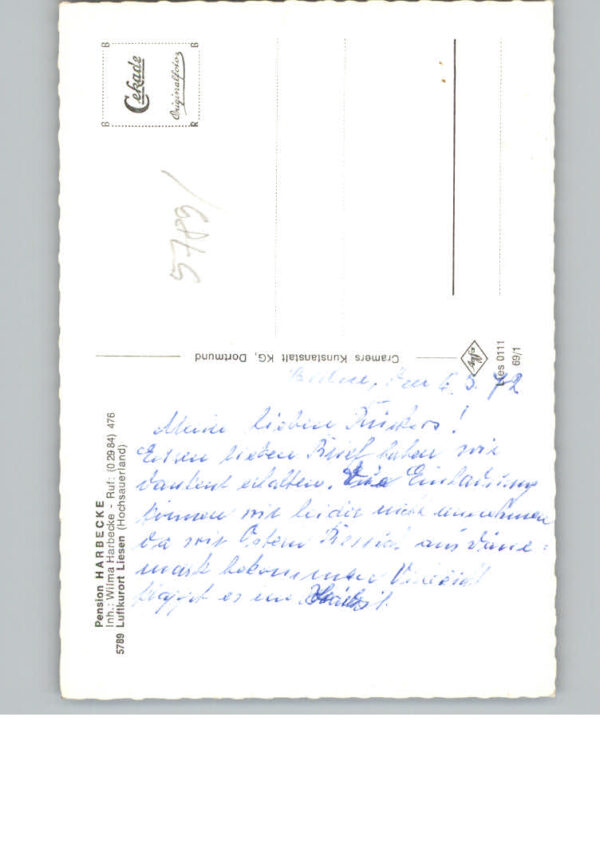 Cekade
Originalfotos
5789/
Cramers Kunstanstalt KG, Dortmund
Agfa
Lies 0111
69/1
Pension HARBECKE
Inh.: Wilma Harbecke - Ruf: (0 29 84) 476
5789 Luftkurort Liesen (Hochsauerland)
den 6. 3. 72
Meine lieben
Euren lieben Brief haben wir
dankend erhalten. Die Einladung
können wir leider nicht annehmen
da wir Ostern Besuch aus Däne-
mark bekommen Vielleicht
klappt es im